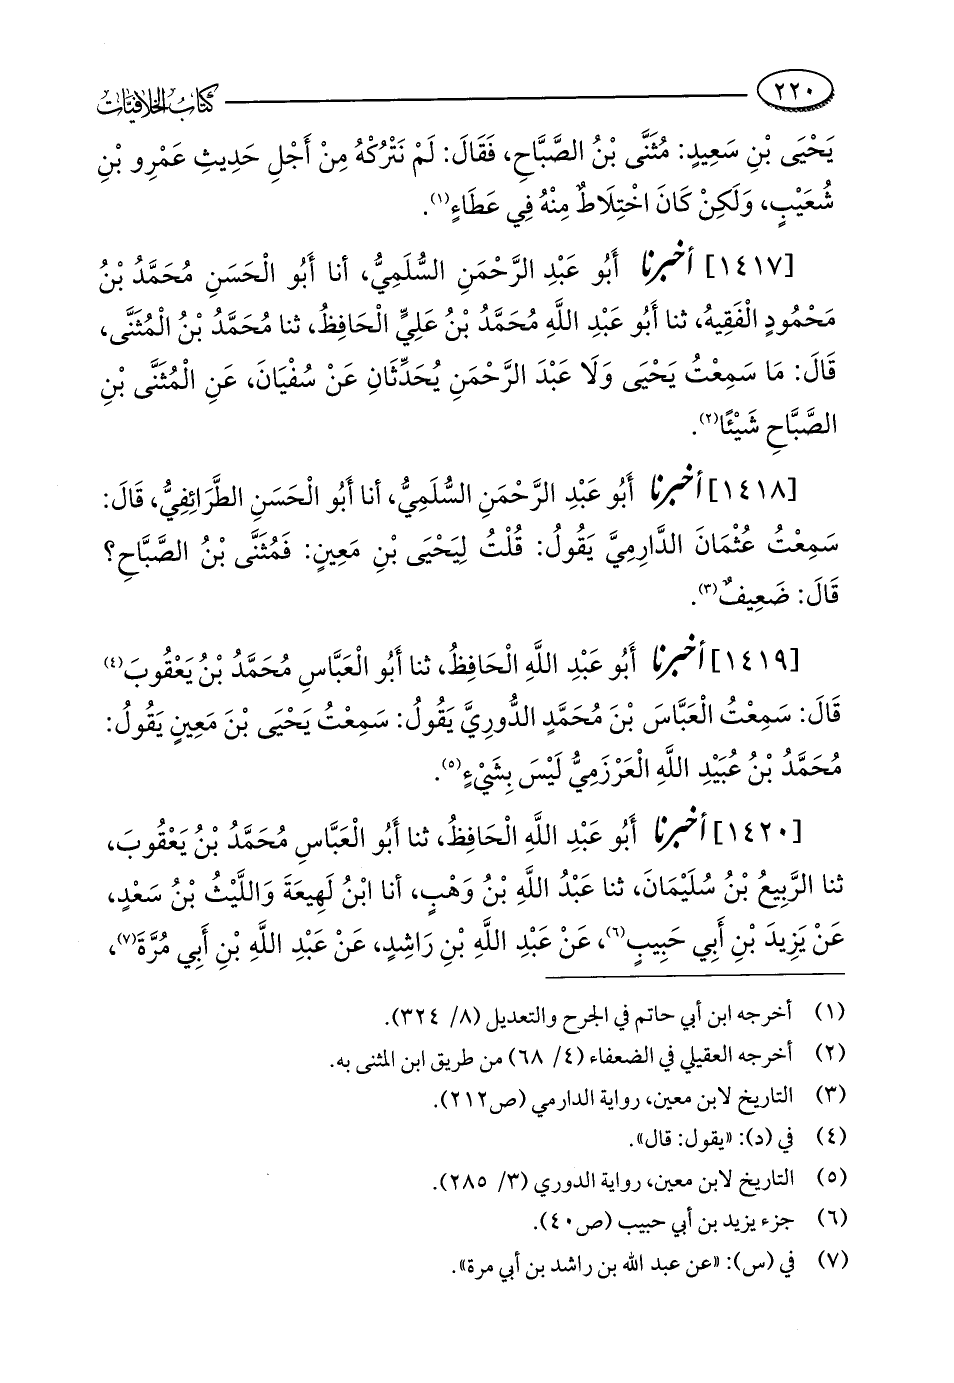 ٢٢٠
كتاب الخلافيات
يَحْيَى بْنِ سَعِيدٍ: مُثَنَّى بْنُ الصَّبَّاحِ، فَقَالَ: لَمْ نَتْرُكْهُ مِنْ أَجْلِ حَدِيثِ عَمْرِو بْنِ
شُعَيْبٍ، وَلَكِنْ كَانَ اخْتِلَاطٌ مِنْهُ فِي عَطَاءٍ(١).
[١٤١٧] أخبرنا أَبُو عَبْدِ الرَّحْمَنِ السُّلَمِيُّ، أنا أَبُو الْحَسَنِ مُحَمَّدُ بْنُ
مَحْمُودٍ الْفَقِيهُ، ثنا أَبُو عَبْدِ اللَّهِ مُحَمَّدُ بْنُ عَلِيٍّ الْحَافِظُ، ثنا مُحَمَّدُ بْنُ الْمُثَنَّى،
قَالَ: مَا سَمِعْتُ يَحْيَى وَلَا عَبْدَ الرَّحْمَنِ يُحَدِّثَانِ عَنْ سُفْيَانَ، عَنِ الْمُثَنَّى بْنِ
الصَّبَّاحِ شَيْئًا(٢).
[١٤١٨] أخبرنا أَبُو عَبْدِ الرَّحْمَنِ السُّلَمِيُّ، أنا أَبُو الْحَسَنِ الطَّرَائِفِيُّ، قَالَ:
سَمِعْتُ عُثْمَانَ الدَّارِمِيَّ يَقُولُ: قُلْتُ لِيَحْيَى بْنِ مَعِينٍ: فَمُثَنَّى بْنُ الصَّبَّاحِ؟
قَالَ: ضَعِيفٌ(٣).
[١٤١٩] أخبرنا أَبُو عَبْدِ اللَّهِ الْحَافِظُ، ثنا أَبُو الْعَبَّاسِ مُحَمَّدُ بْنُ يَعْقُوبَ(٤)
قَالَ: سَمِعْتُ الْعَبَّاسَ بْنَ مُحَمَّدٍ الدُّورِيَّ يَقُولُ: سَمِعْتُ يَحْيَى بْنَ مَعِينٍ يَقُولُ:
مُحَمَّدُ بْنُ عُبَيْدِ اللَّهِ الْعَرْزَمِيُّ لَيْسَ بِشَيْءٍ(٥).
[١٤٢٠] أخبرنا أَبُو عَبْدِ اللَّهِ الْحَافِظُ، ثنا أَبُو الْعَبَّاسِ مُحَمَّدُ بْنُ يَعْقُوبَ،
ثنا الرَّبِيعُ بْنُ سُلَيْمَانَ، ثنا عَبْدُ اللَّهِ بْنُ وَهْبٍ، أنا ابْنُ لَهِيعَةَ وَاللَّيْثُ بْنُ سَعْدٍ،
عَنْ يَزِيدَ بْنِ أَبِي حَبِيبٍ(٦)، عَنْ عَبْدِ اللَّهِ بْنِ رَاشِدٍ، عَنْ عَبْدِ اللَّهِ بْنِ أَبِي مُرَّةَ(٧)،
(١) أخرجه ابن أبي حاتم في الجرح والتعديل (٨/ ٣٢٤).
(٢) أخرجه العقيلي في الضعفاء (٤/ ٦٨) من طريق ابن المثنى به.
(٣) التاريخ لابن معين، رواية الدارمي (ص٢١٢).
(٤) في (د): «يقول: قال».
(٥) التاريخ لابن معين، رواية الدوري (٣/ ٢٨٥).
(٦) جزء يزيد بن أبي حبيب (ص٤٠).
(٧) في (س): «عن عبد الله بن راشد بن أبي مرة».